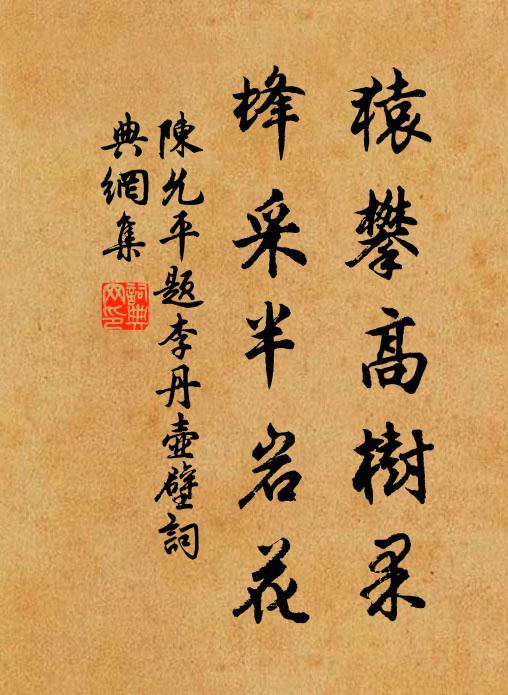 猿攀高樹果
蜂采半岩花
陳允平題李丹壺壁詞
典網集
詞典網印